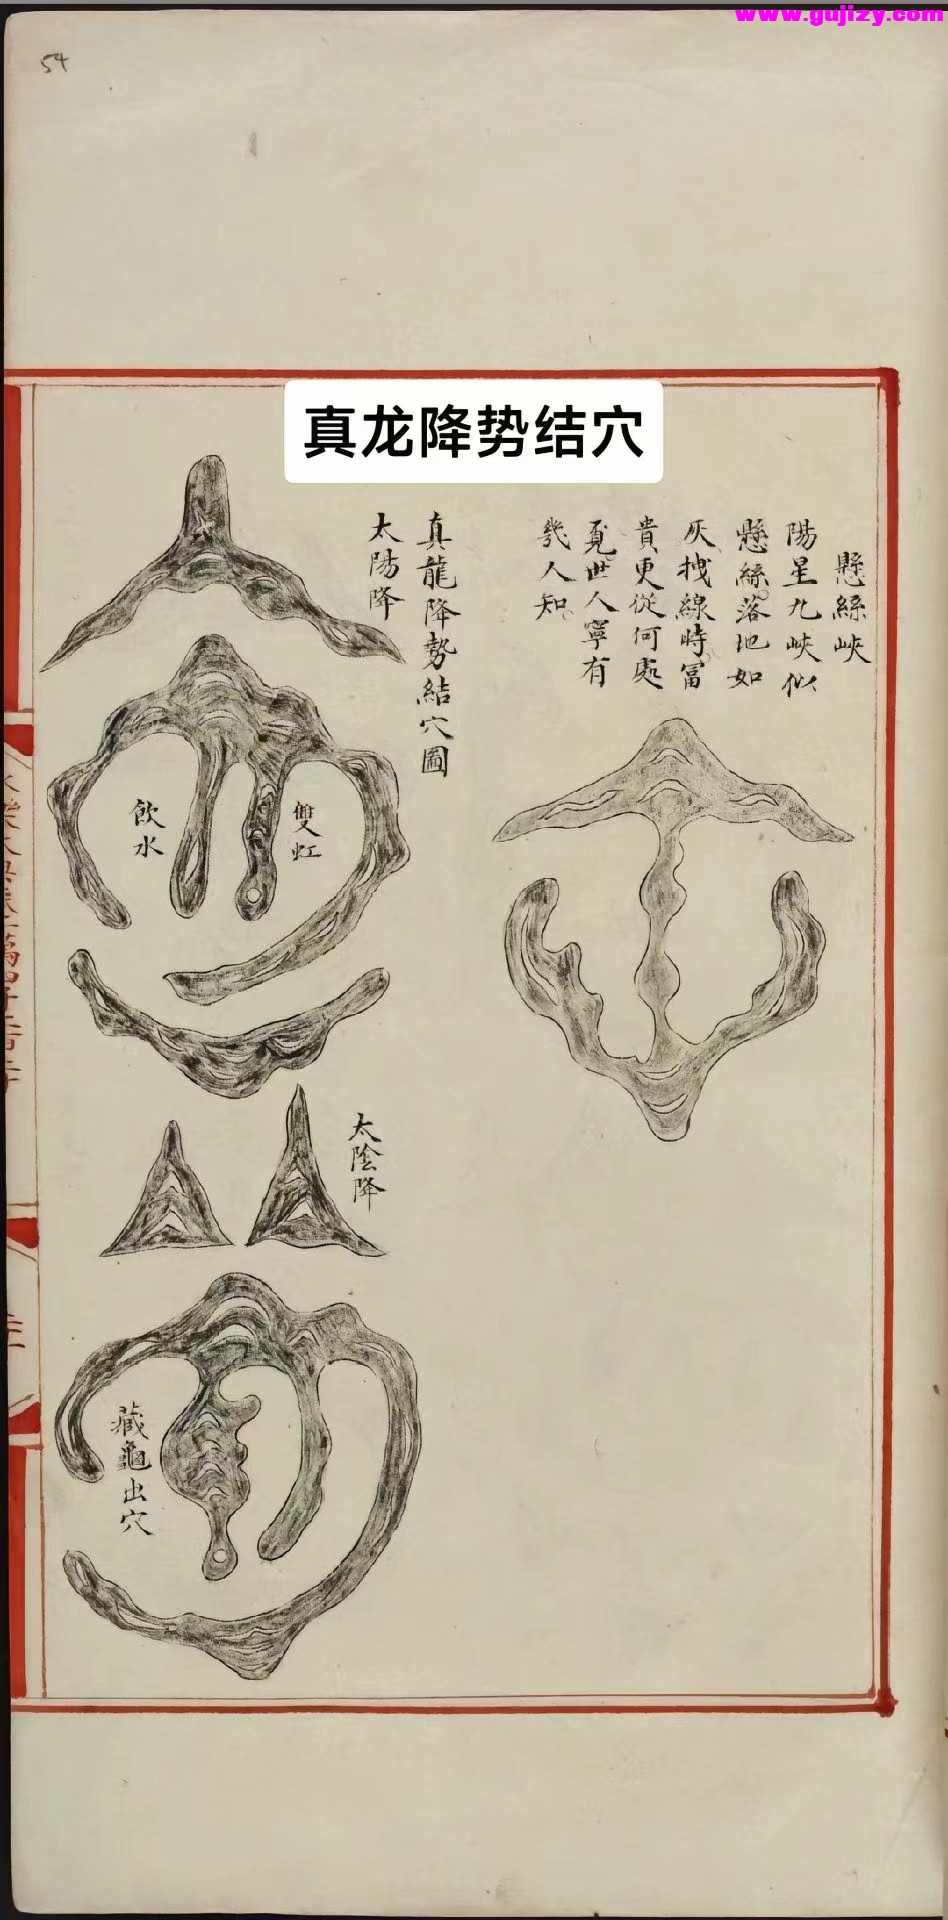 www.gujizy.com
54
真龙降势结穴
懸絲峽
陽星九峽似
懸絲落地如
灰拽線時冨
貴更從何處
覔世人寧有
幾人知
真龍降勢結穴圖
太陽降
雙虹
飲水
太陰降
藏龜出穴